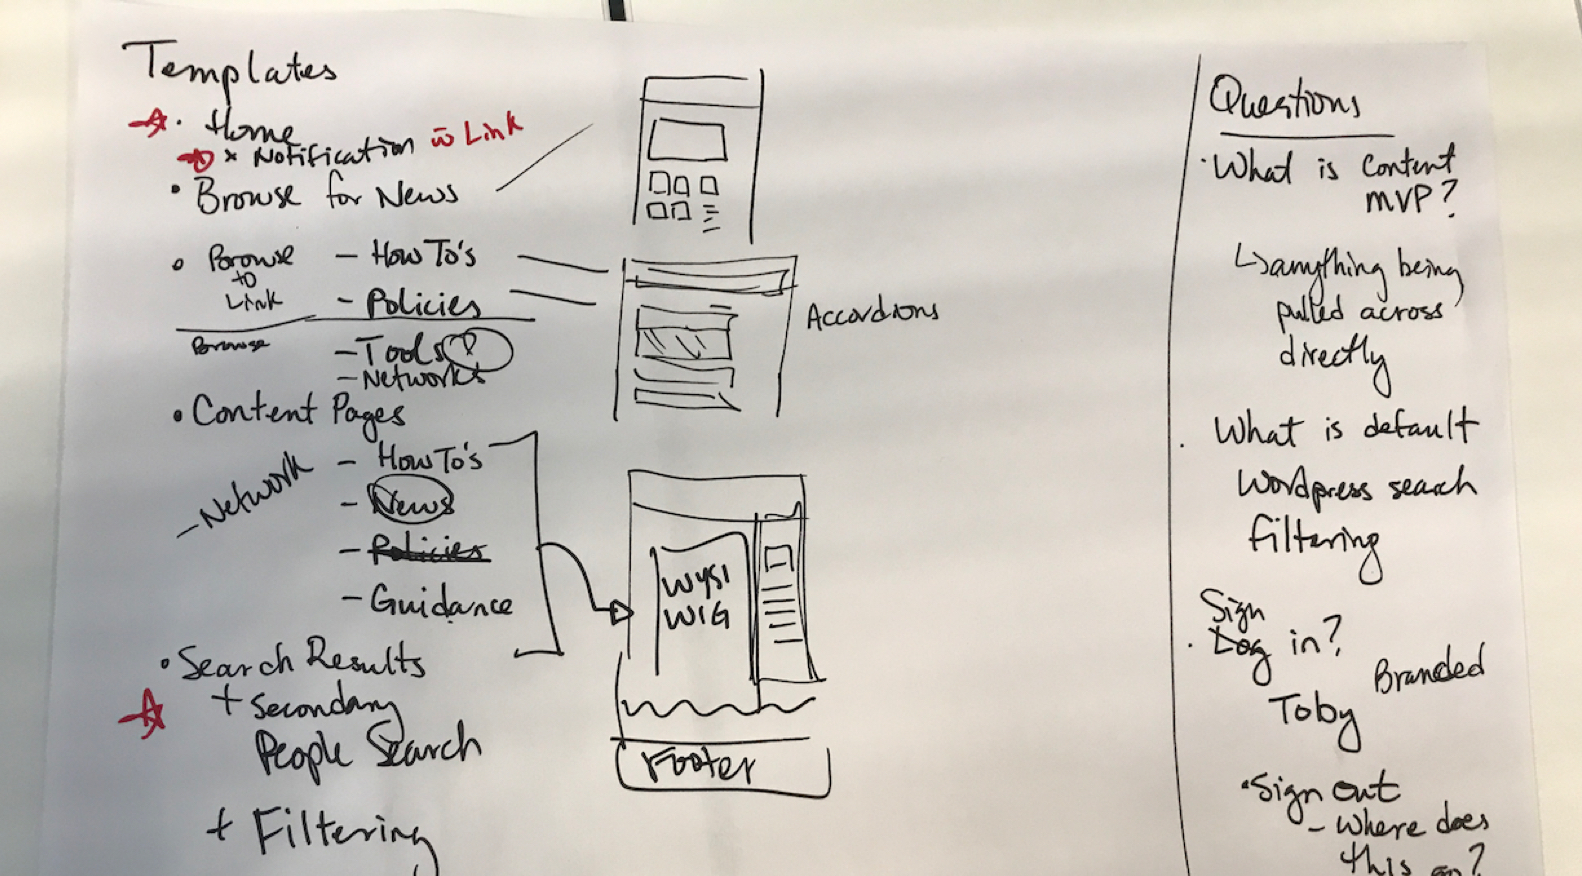 Templates
· Home
* Notification w̄ Link
· Browse for News
· Browse to Link
– How To's
– Policies
Browse
– Tools
– Networks
· Content Pages
– Network
– How To's
– News
– Policies
– Guidance
· Search Results
+ Secondary
People Search
+ Filtering
Accordions
WYSI
WIG
Footer
Questions
· What is Content
MVP?
↳ anything being
pulled across
directly
· What is default
Wordpress search
filtering
Sign
· Log in?
Branded
Toby
· Sign out
– Where does
this go?